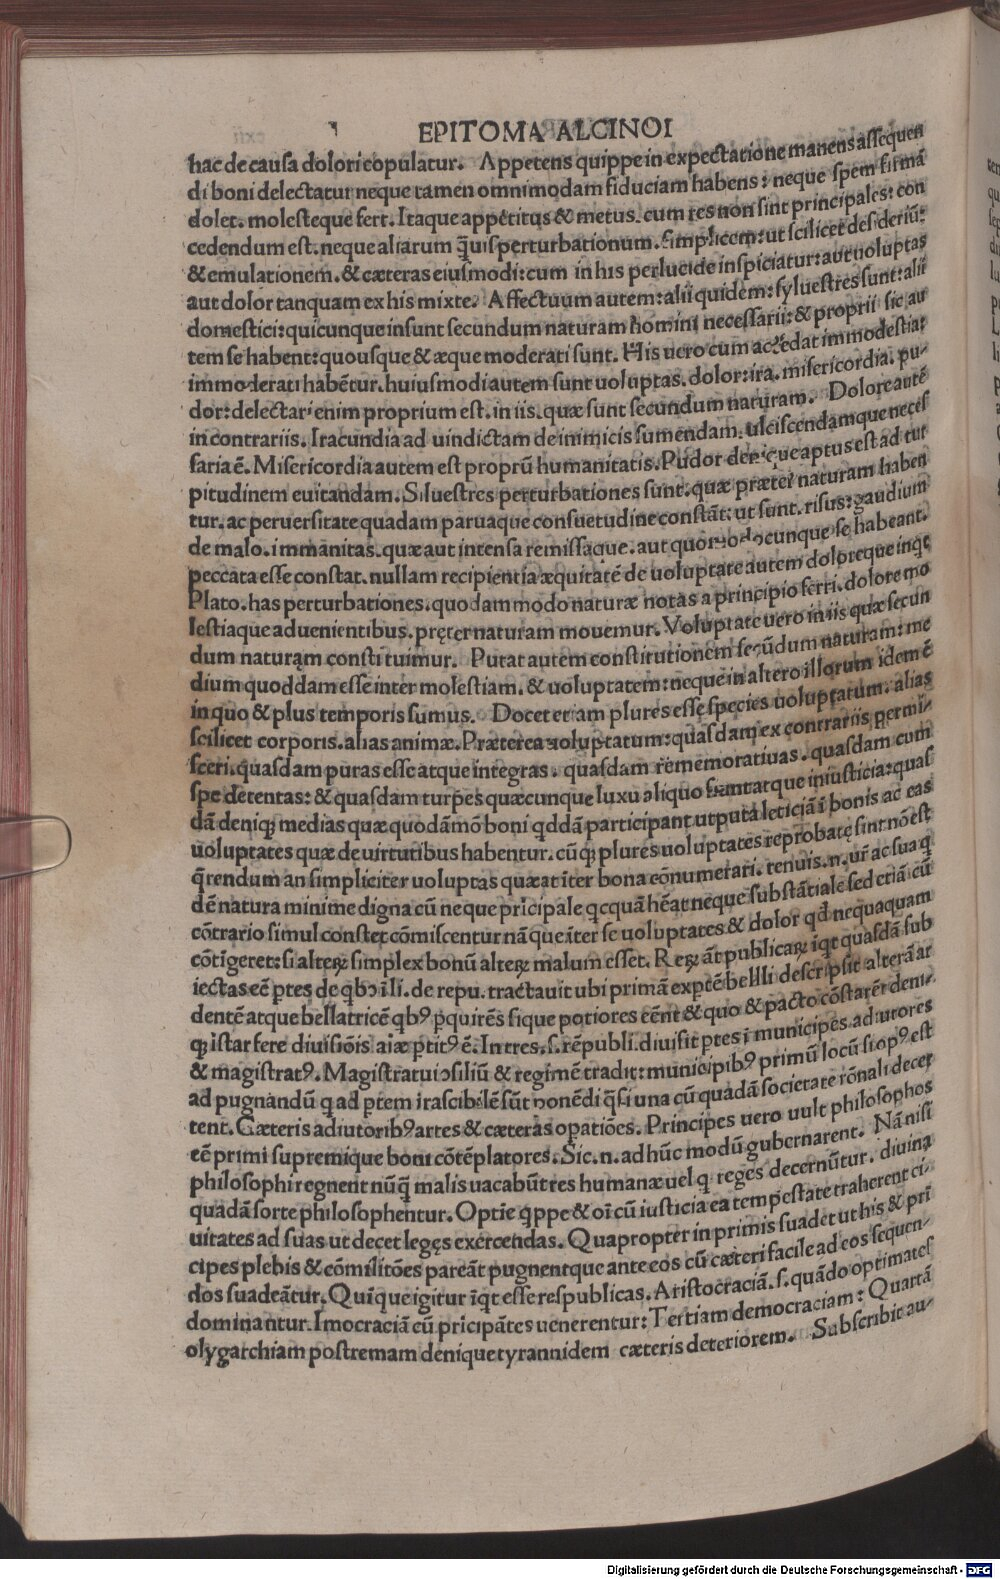 EPITOMA ALCINOI
hac de causa dolori copulatur. Appetens quippe in expectatione manens assequen
di boni delectatur neque tamen omnimodam fiduciam habens: neque spem firmā
dolet. molesteque fert. Itaque appetitus & metus. cum res non sint principales: con
cedendum est. neque aliarum q̄uis perturbationum. simplicem: ut scilicet desideriū:
& emulationem. & cæteras eiusmodi: cum in his perlucide inspiciatur: aut uoluptas
aut dolor tanquam ex his mixte. Affectuum autem: alii quidem: syluestres sunt: alii
domestici: quicunque insunt secundum naturam homini necessarii: & proprii sic au
tem se habent: quousque & æque moderati sunt. His uero cum accedat immodestia:
immoderati habētur. huiusmodi autem sunt uoluptas. dolor: ira. misericordia. pu-
dor: delectari enim proprium est. in iis. quæ sunt secundum naturam. Dolore autē
in contrariis. Iracundia ad uindictam de inimicis sumendam. ulciscendamque neces
saria ē. Misericordia autem est propriū humanitatis. Pudor denique aptus est ad tur
pitudinem euitandam. Siluestres perturbationes sunt. quæ præter naturam haben
tur. ac peruersitate quadam paruaque consuetudine constāt: ut sunt. risus: gaudium
de malo. immanitas. quæ aut intensa remissaque. aut quomodocunque se habeant.
peccata esse constat. nullam recipientia æquitatē de uoluptate autem doloreque inqt
Plato. has perturbationes. quodammodo naturæ notas a principio ferri. dolore mo
lestiaque aduenientibus. pręter naturam mouemur. Voluptate uero in iis quæ secun
dum naturam constituimur. Putat autem constitutionem secūdum naturam: me
dium quoddam esse inter molestiam. & uoluptatem: neque in altero illorum idem ē
in quo & plus temporis sumus. Docet etiam plures esse species uoluptatum. alias
scilicet corporis. alias animæ. Præterea uoluptatum: quasdam ex contrariis permi-
sceri. quasdam puras esse atque integras. quasdam rememoratiuas. quasdam cum
spe detentas: & quasdam turpes quæcunque luxu aliquo fiant atque iniusticia: quas
dā deniqꝫ medias quæ quodāmō boni qddā participant ut puta leticiā ī bonis ac eas
uoluptates quæ de uirtutibus habentur. cū qꝫ plures uoluptates reprobatę sint nō est
q̄rendum an simpliciter uoluptas quæat īter bona cōnumerari. tenuis. n. ur̄ ac sua q
dē natura minime digna cū neque pricipale qcquā hēat neque substātiale sed etiā cū
cōtrario simul constet cōmiscentur nāque īter se uoluptates & dolor qd̄ nequaquam
cōtigeret: si alterꝝ simplex bonū alterꝝ malum esset. Rerꝝ āt publicarꝝ īqt quasdā sub
iectas eē ꝑtes de qbꝰ ī li. de repu. tractauit ubi primā exꝑtē belli descripsit alterā ar
dentē atque bellatricē qbꝰ ꝑquirēs sique potiores eēnt & quo & pacto cōstarēt deni-
qꝫ istar fere diuisiōis aiæ ꝑtitꝰ ē. In tres. s. rēpubli. diuisit ꝑtes ī municipes adiutores
& magistratꝰ. Magistratui ↄsiliū & regimē tradit: municipibꝰ primū locū si opꝰ est
ad pugnandū q ad ꝑtem irascibilē sūt ponēdi q̄si una cū quadā societate rōnali decer
tent. Cæteris adiutoribꝰ artes & cæteras oꝑatiōes. Principes uero uult philosophos
eē primi supremique boni cōtēplatores. Sic. n. ad hūc modū gubernarent. Nā nisi
philosophi regnent nūq̄ malis uacabūt res humanæ uel q reges decernūtur. diuina
quadā sorte philosophentur. Optīe qppe & oī cū iusticia ea tempestate traherent ci-
uitates ad suas ut decet leges exercendas. Quapropter in primis suadet ut his & pri
cipes plebis & cōmilitōes pareāt pugnentque ante eos cū cæteri facile ad eos sequen-
dos suadeātur. Quīque igitur īqt esse respublicas. Aristocraciā. s. quādo optimates
dominantur. Imocraciā cū pricipātes uenerentur: Tertiam democraciam: Quartā
olygarchiam postremam denique tyrannidem cæteris deteriorem. Subscribit au-
Digitalisierung gefördert durch die Deutsche Forschungsgemeinschaft - DFG